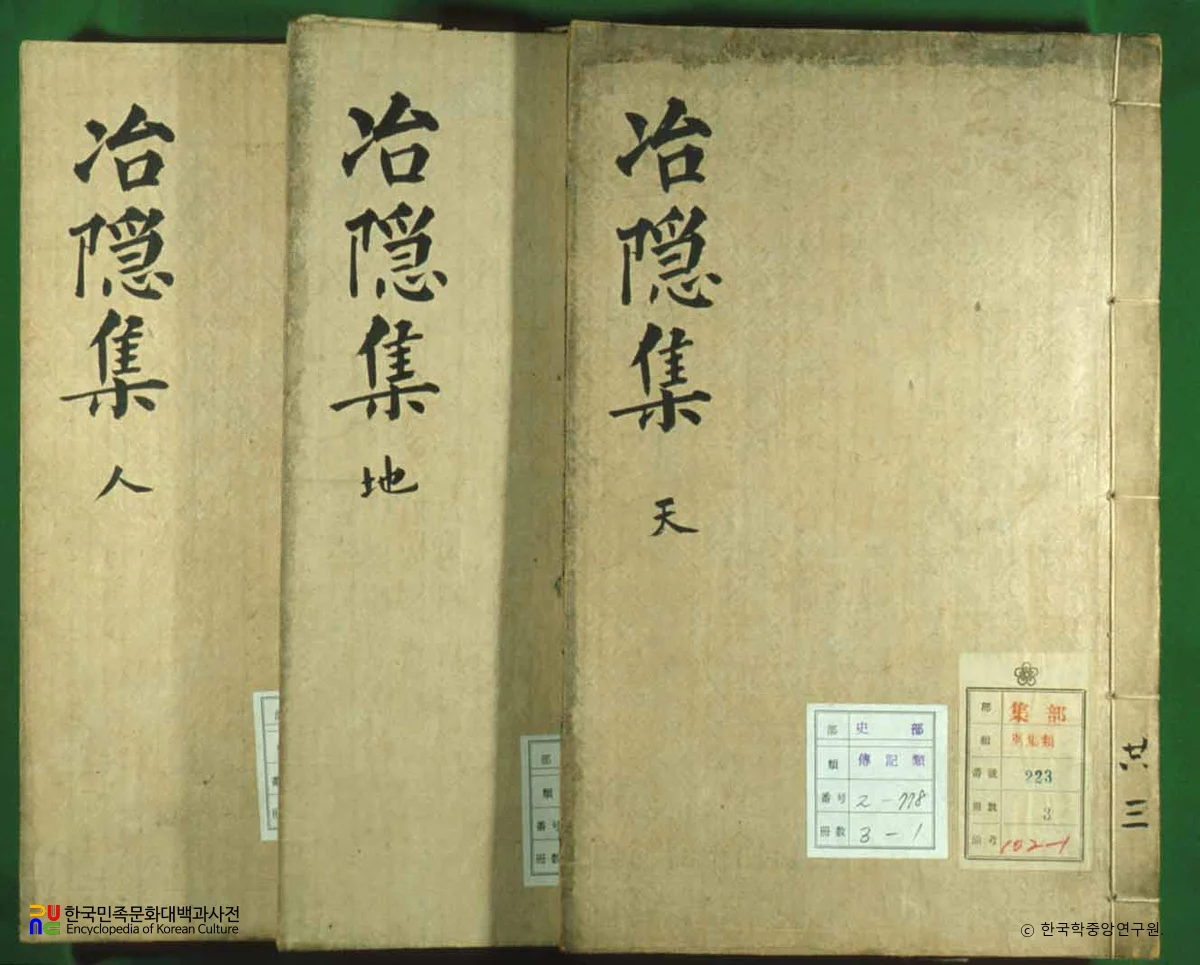 冶隠集
天
冶隠集
地
冶隠集
人
共三
部 史部
類 傳記類
番号 2-778
冊数 3-1
部 集部
類 別集類
番號 223
冊數 3
備考 102-1
部
類
番号
冊数
한국민족문화대백과사전
Encyclopedia of Korean Culture
ⓒ 한국학중앙연구원